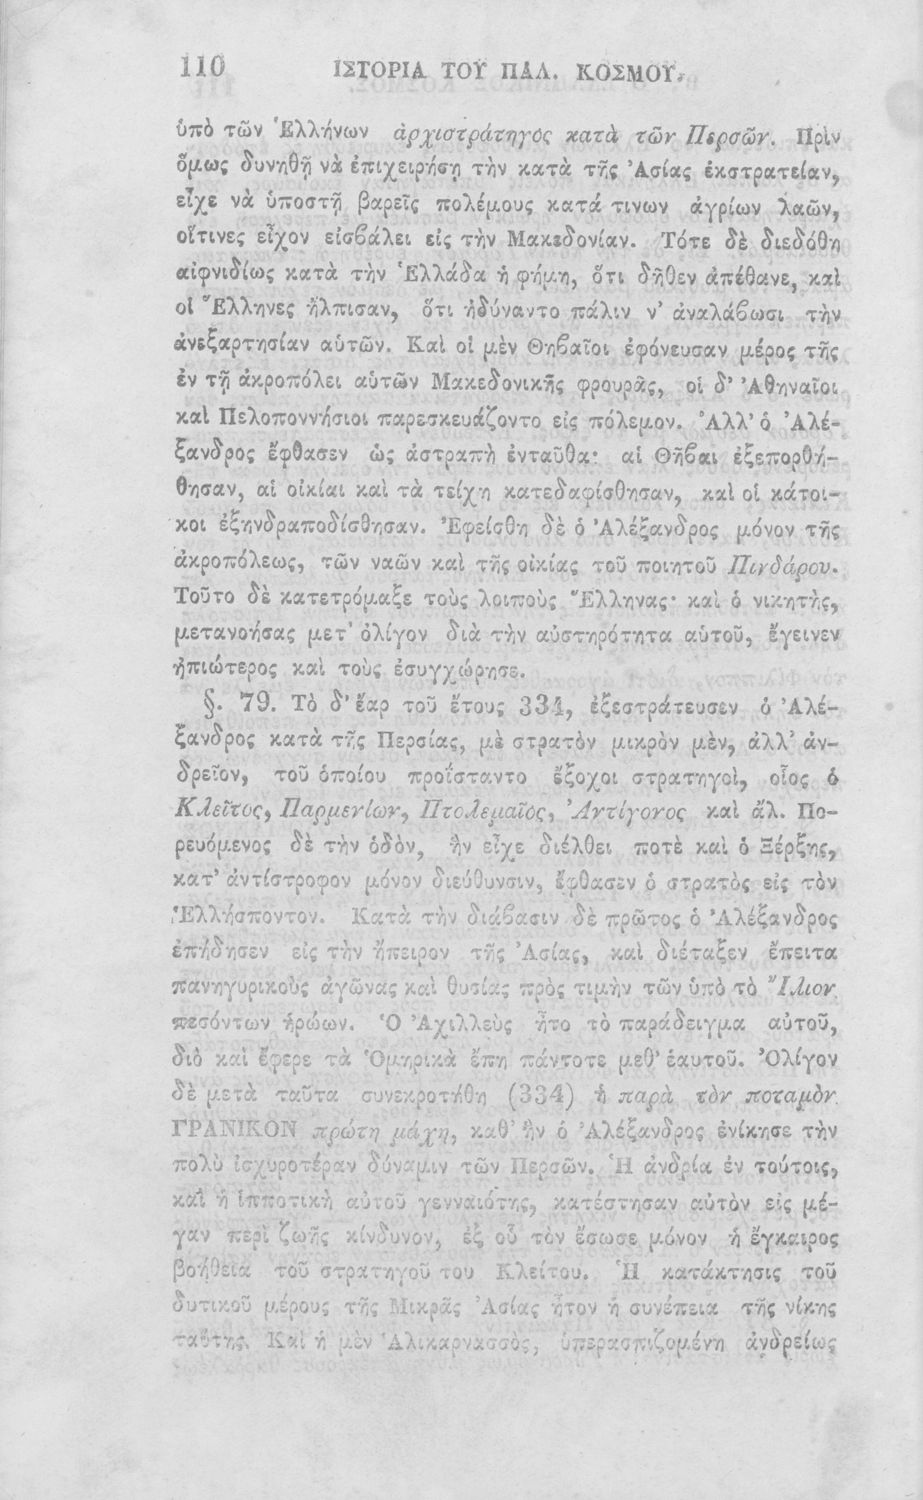 110 ΙΣΤΟΡΙΑ ΤΟΥ ΠΑΛ. ΚΟΣΜΟΥ.
ὑπὸ τῶν Ἑλλήνων ἀρχιστράτηγος κατὰ τῶν Περσῶν. Πρὶν
ὅμως δυνηθῇ νὰ ἐπιχειρήσῃ τὴν κατὰ τῆς Ἀσίας ἐκστρατείαν,
εἶχε νὰ ὑποστῇ βαρεῖς πολέμους κατά τινων ἀγρίων λαῶν,
οἵτινες εἶχον εἰσβάλει εἰς τὴν Μακεδονίαν. Τότε δὲ διεδόθη
αἰφνιδίως κατὰ τὴν Ἑλλάδα ἡ φήμη, ὅτι δῆθεν ἀπέθανε, καὶ
οἱ Ἕλληνες ἤλπισαν, ὅτι ἠδύναντο πάλιν ν' ἀναλάβωσι τὴν
ἀνεξαρτησίαν αὑτῶν. Καὶ οἱ μὲν Θηβαῖοι ἐφόνευσαν μέρος τῆς
ἐν τῇ ἀκροπόλει αὑτῶν Μακεδονικῆς φρουρᾶς, οἱ δ' Ἀθηναῖοι
καὶ Πελοποννήσιοι παρεσκευάζοντο εἰς πόλεμον. Ἀλλ' ὁ Ἀλέ-
ξανδρος ἔφθασεν ὡς ἀστραπὴ ἐνταῦθα· αἱ Θῆβαι ἐξεπορθή-
θησαν, αἱ οἰκίαι καὶ τὰ τείχη κατεδαφίσθησαν, καὶ οἱ κάτοι-
κοι ἐξηνδραποδίσθησαν. Ἐφείσθη δὲ ὁ Ἀλέξανδρος μόνον τῆς
ἀκροπόλεως, τῶν ναῶν καὶ τῆς οἰκίας τοῦ ποιητοῦ Πινδάρου.
Τοῦτο δὲ κατετρόμαξε τοὺς λοιποὺς Ἕλληνας· καὶ ὁ νικητὴς,
μετανοήσας μετ' ὀλίγον διὰ τὴν αὐστηρότητα αὑτοῦ, ἔγεινεν
ἠπιώτερος καὶ τοὺς ἐσυγχώρησε.
§. 79. Τὸ δ' ἔαρ τοῦ ἔτους 334, ἐξεστράτευσεν ὁ Ἀλέ-
ξανδρος κατὰ τῆς Περσίας, μὲ στρατὸν μικρὸν μὲν, ἀλλ' ἀν-
δρεῖον, τοῦ ὁποίου προΐσταντο ἔξοχοι στρατηγοὶ, οἷος ὁ
Κλεῖτος, Παρμενίων, Πτολεμαῖος, Ἀντίγονος καὶ ἄλ. Πο-
ρευόμενος δὲ τὴν ὁδὸν, ἣν εἶχε διέλθει ποτὲ καὶ ὁ Ξέρξης,
κατ' ἀντίστροφον μόνον διεύθυνσιν, ἔφθασεν ὁ στρατὸς εἰς τὸν
Ἑλλήσποντον. Κατὰ τὴν διάβασιν δὲ πρῶτος ὁ Ἀλέξανδρος
ἐπήδησεν εἰς τὴν ἤπειρον τῆς Ἀσίας, καὶ διέταξεν ἔπειτα
πανηγυρικοὺς ἀγῶνας καὶ θυσίας πρὸς τιμὴν τῶν ὑπὸ τὸ Ἴλιον
πεσόντων ἡρώων. Ὁ Ἀχιλλεὺς ἦτο τὸ παράδειγμα αὐτοῦ,
διὸ καὶ ἔφερε τὰ Ὁμηρικὰ ἔπη πάντοτε μεθ' ἑαυτοῦ. Ὀλίγον
δὲ μετὰ ταῦτα συνεκροτήθη (334) ἡ παρὰ τὸν ποταμὸν
ΓΡΑΝΙΚΟΝ πρώτη μάχη, καθ' ἣν ὁ Ἀλέξανδρος ἐνίκησε τὴν
πολὺ ἰσχυροτέραν δύναμιν τῶν Περσῶν. Ἡ ἀνδρία ἐν τούτοις,
καὶ ἡ ἱπποτικὴ αὐτοῦ γενναιότης, κατέστησαν αὐτὸν εἰς μέ-
γαν περὶ ζωῆς κίνδυνον, ἐξ οὗ τὸν ἔσωσε μόνον ἡ ἔγκαιρος
βοήθεια τοῦ στρατηγοῦ του Κλείτου. Ἡ κατάκτησις τοῦ
δυτικοῦ μέρους τῆς Μικρᾶς Ἀσίας ἦτον ἡ συνέπεια τῆς νίκης
ταύτης. Καὶ ἡ μὲν Ἁλικαρνασσὸς, ὑπερασπιζομένη ἀνδρείως